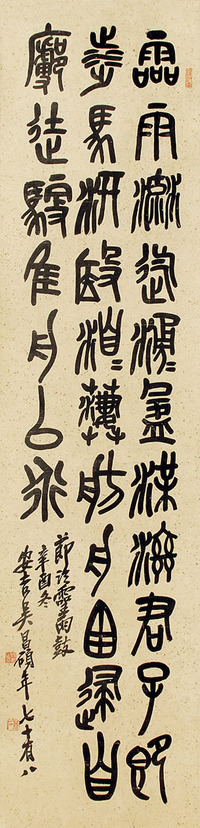 霝雨流迄滂盈渫濟君子即
涉馬汧殹洎萋舫舟囪逮自
廓徒馭隹舟以行
節臨霝雨鼓
辛酉冬
安吉吳昌碩年七十有八